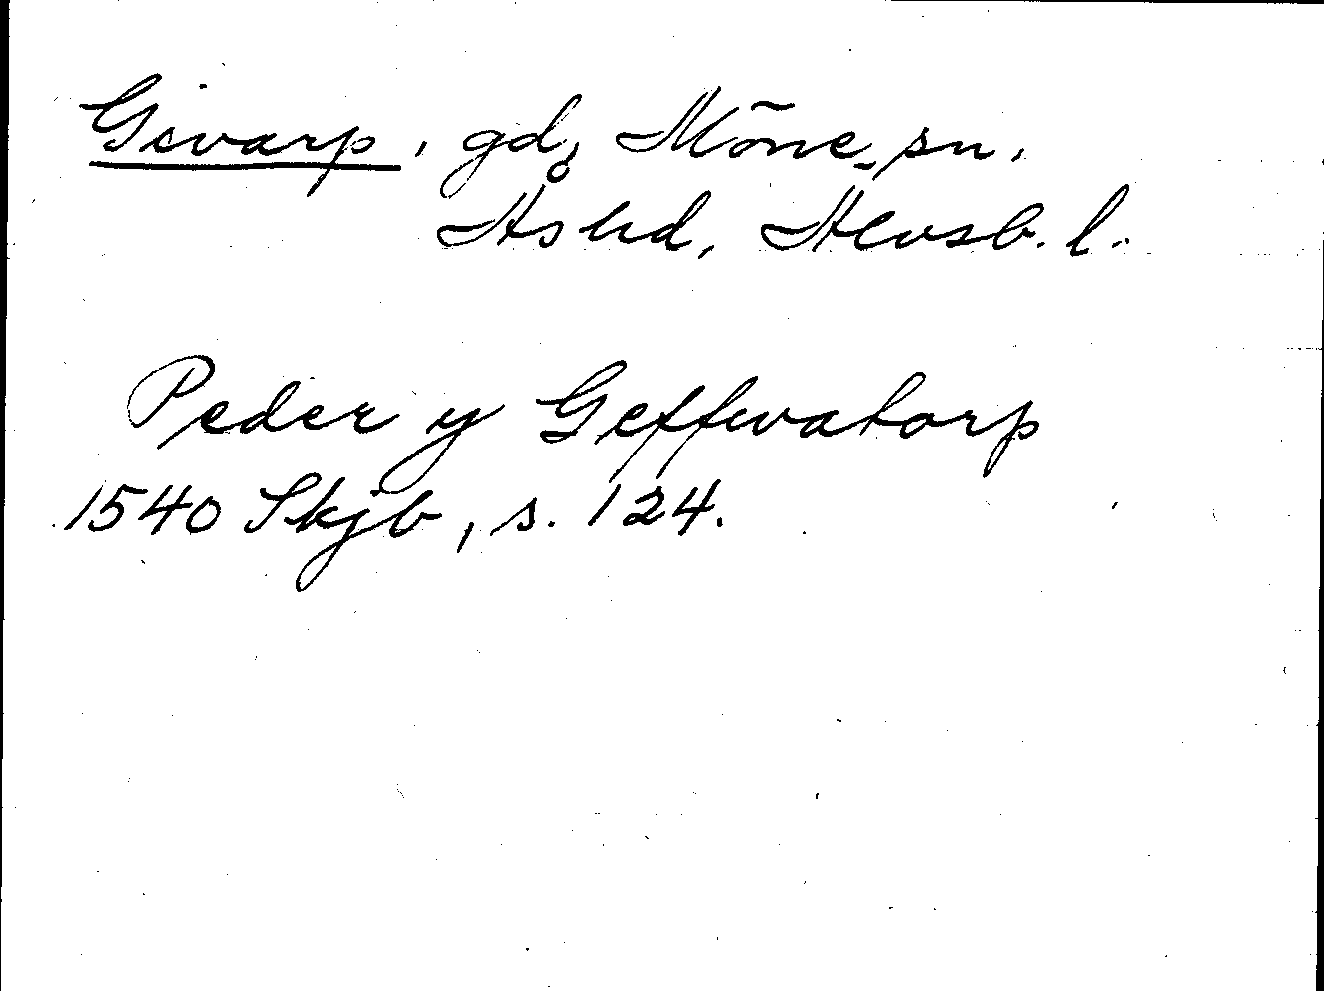 Givarp, gd, Möne sn.
Ås hd, Älvsb. l.
Peder y Geffwatorp
1540 Skjb, s. 124.